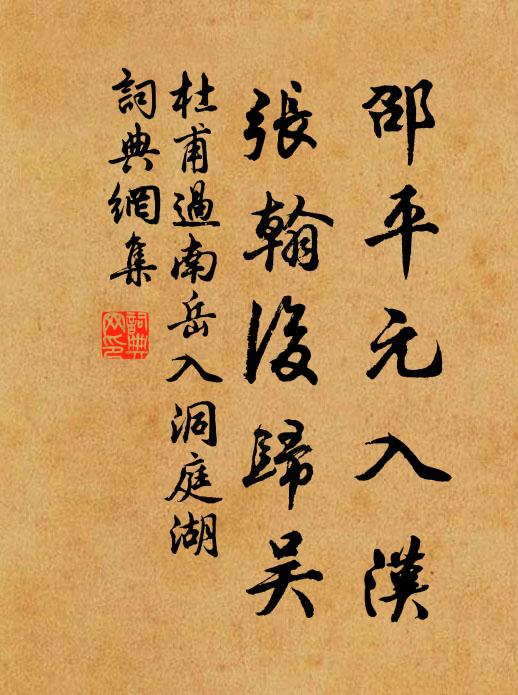 邵平元入漢
張翰後歸吴
杜甫過南岳入洞庭湖
詞典網集
詞典网印